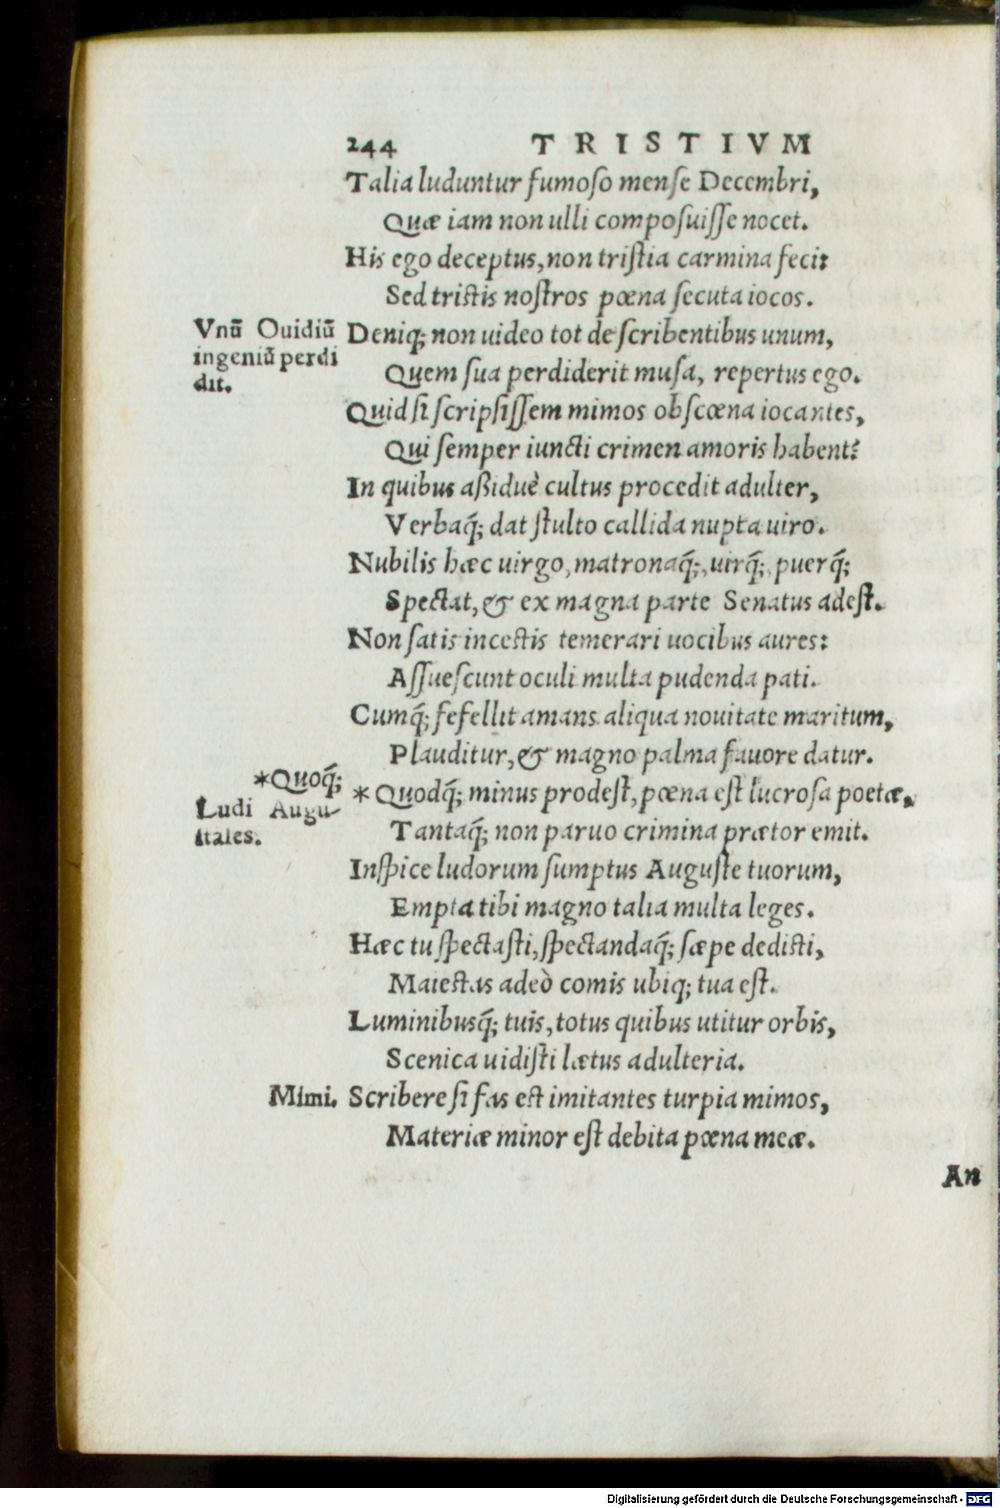 244 TRISTIVM
Talia luduntur fumoſo menſe Decembri,
Quæ iam non ulli compoſuiſſe nocet.
His ego deceptus, non triſtia carmina feci:
Sed triſtis noſtros pœna ſecuta iocos.
Vnū Ouidiū
ingeniū perdi
dit.
Deniq; non uideo tot de ſcribentibus unum,
Quem ſua perdiderit muſa, repertus ego.
Quid ſi ſcripſiſſem mimos obſcœna iocantes,
Qui ſemper iuncti crimen amoris habent?
In quibus aßiduè cultus procedit adulter,
Verbaq́; dat ſtulto callida nupta uiro.
Nubilis hæc uirgo, matronaq́;, uirq́;, puerq́;
Spectat, & ex magna parte Senatus adeſt.
Non ſatis inceſtis temerari uocibus aures:
Aſſueſcunt oculi multa pudenda pati.
Cumq́; fefellit amans aliqua nouitate maritum,
Plauditur, & magno palma fauore datur.
*Quoq́;
Ludi Augu-
ſtales.
* Quodq́; minus prodeſt, pœna eſt lucroſa poetæ,
Tantaq́; non paruo crimina prætor emit.
Inſpice ludorum ſumptus Auguſte tuorum,
Empta tibi magno talia multa leges.
Hæc tu ſpectaſti, ſpectandaq́; ſæpe dediſti,
Maieſtas adeò comis ubiq; tua eſt.
Luminibusq́; tuis, totus quibus utitur orbis,
Scenica uidiſti lætus adulteria.
Mimi.
Scribere ſi fas eſt imitantes turpia mimos,
Materiæ minor eſt debita pœna meæ.
An
Digitalisierung gefördert durch die Deutsche Forschungsgemeinschaft - DFG